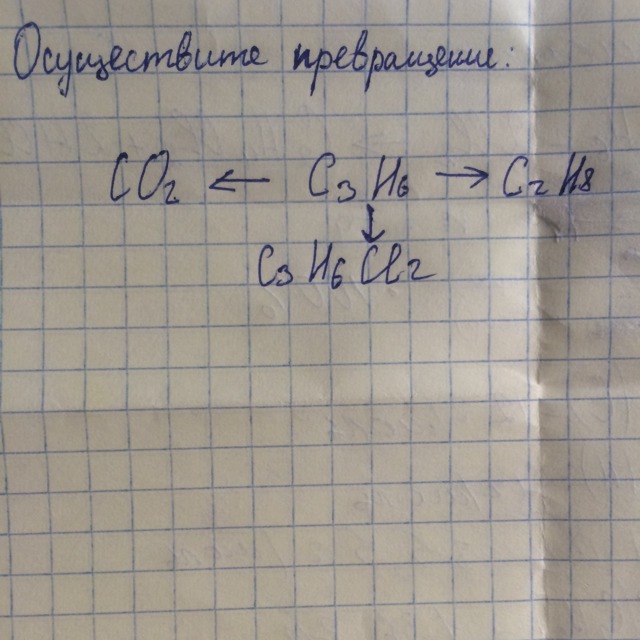 Осуществите превращение:
CO₂ ← C₃H₆ → C₂H₈
↓
C₃H₆Cl₂